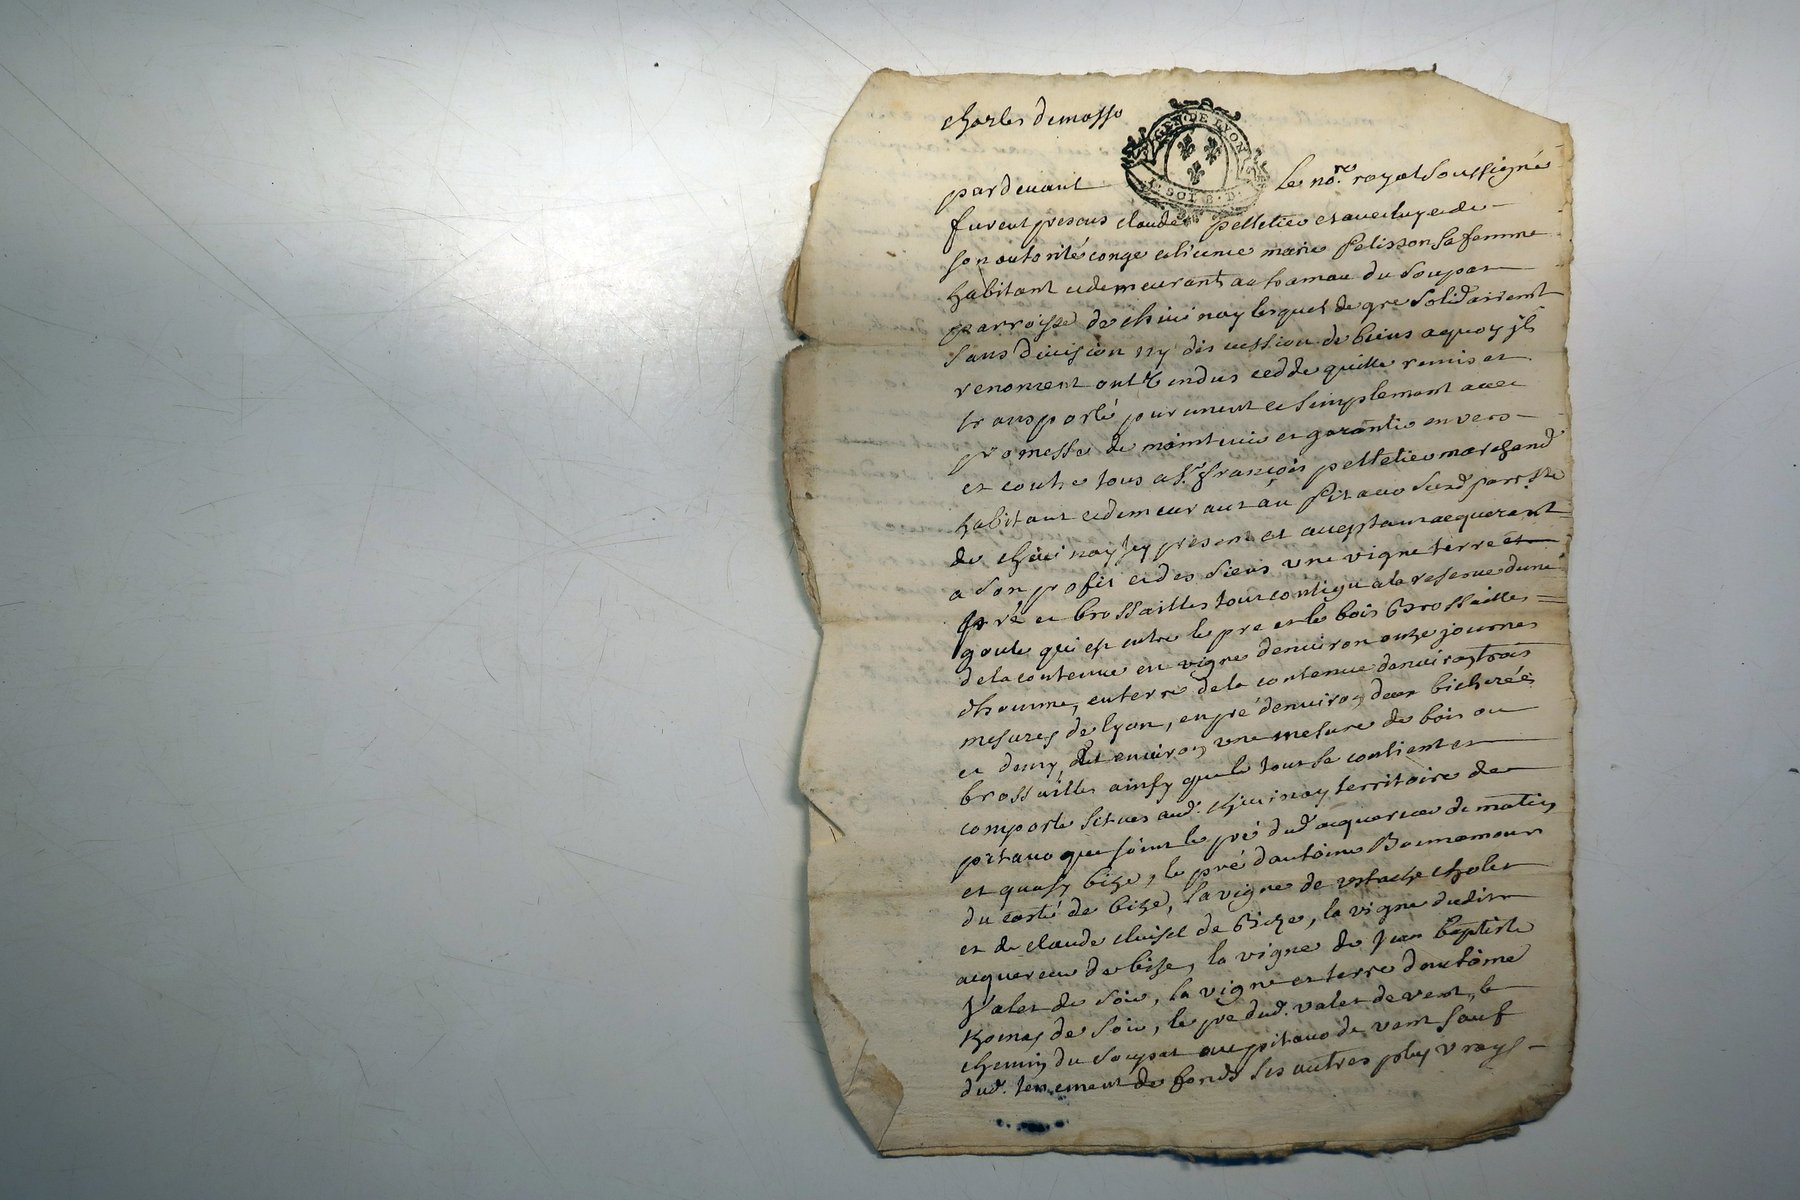 charles demasso
GEN·DE LYON
SOL 8·D
pardevant le no.re royal soussigné
furent presens claude pelletier et avec luy et de
son autorité conge et licence marie pelisson sa femme
habitant et demeurant au hameau du soupat
parroisse de chivinay lesquels de gre solidairemt
sans division ny discussion de biens aquoy jls
renoncent ont vendus cedde quitte remis et
transporté purement et simplement avec
promesse de maintenir et garantir envers
et contre tous a sr. françois pelletier marchand
habitant et demeurant au pitavo susd. parr.sse
de chivinay jcy present et acceptant acquerant
a son profit et des siens une vigne terre et
pré et brossailles tout contigu a la reserve dune
goute qui est entre le pre et le bois Brossailles
de la contenue en vigne denviron onze journes
dhomme, en terre de la contenue denviron trois
mesures de lyon, en pré denviron deux bicherées
et demy, et environ une mesure de bois ou
brossailles ainsy que le tout se contient et
comporte situes aud. chivinay territoire de
pitavo que joint le pré dud. acquereur de matin
et quasy bize, le pré dantoine Bonnamour
du costé de bize, la vigne de ustache cholet
et de claude de Bize, la vigne dudit
acquereur de bize, la vigne de Jean baptiste
Valet de soir, la vigne et terre dantoine
thomas de soir, le pre dud. valet de vent, le
chemin du soupat au pitavo de vent sauf
dud. tenement de fonds ses autres plus vrays